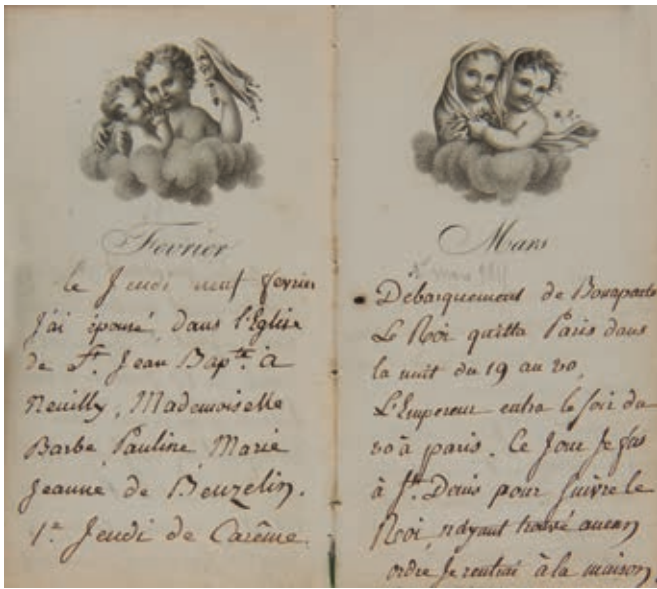 Fevrier
le Jeudi neuf fevrier
J'ai épousé, dans l'Eglise
de St. Jean Bapte. à
Neuilly, Mademoiselle
Barbe Pauline Marie
Jeanne de Beuzelin.
1er Jeudi de Carême.
Mars
Debarquement de Bonaparte
Le Roi quitta Paris dans
la nuit du 19 au 20.
L'Empereur entra le soir du
20 à paris. Ce Jour Je fus
à St. Denis pour suivre le
Roi, n'ayant trouvé aucun
ordre Je rentrai à la maison.